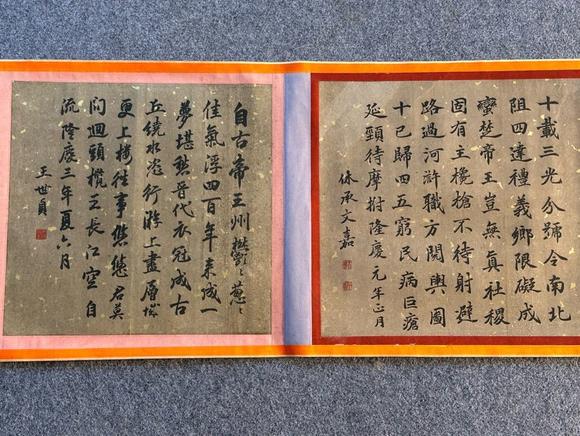 十載三光分號令南北
阻四達禮義鄉限礙成
蠻楚帝王豈無真社稷
固有主欃槍不待射避
路過河滸職方開輿圖
十已歸四五窮民病巨瘡
延頸待摩拊隆慶元年正月
休承文嘉
自古帝王州鬱々葱々
佳氣浮四百年來成一
夢堪愁晉代衣冠成古
丘繞水恣行游上盡層城
更上樓往事悠悠君莫
問迴頭檻外長江空自
流隆慶三年夏六月
王世貞